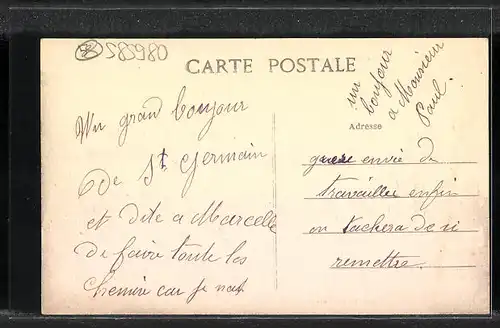 585980
CARTE POSTALE
un
bonjour
a Monsieur
Paul
Adresse
Un grand bonjour
De St Germain
et dite a Marcelle
de faire toute les
chemise car je nai
guere envie de
travailler enfin
on tachera de si
remettre.